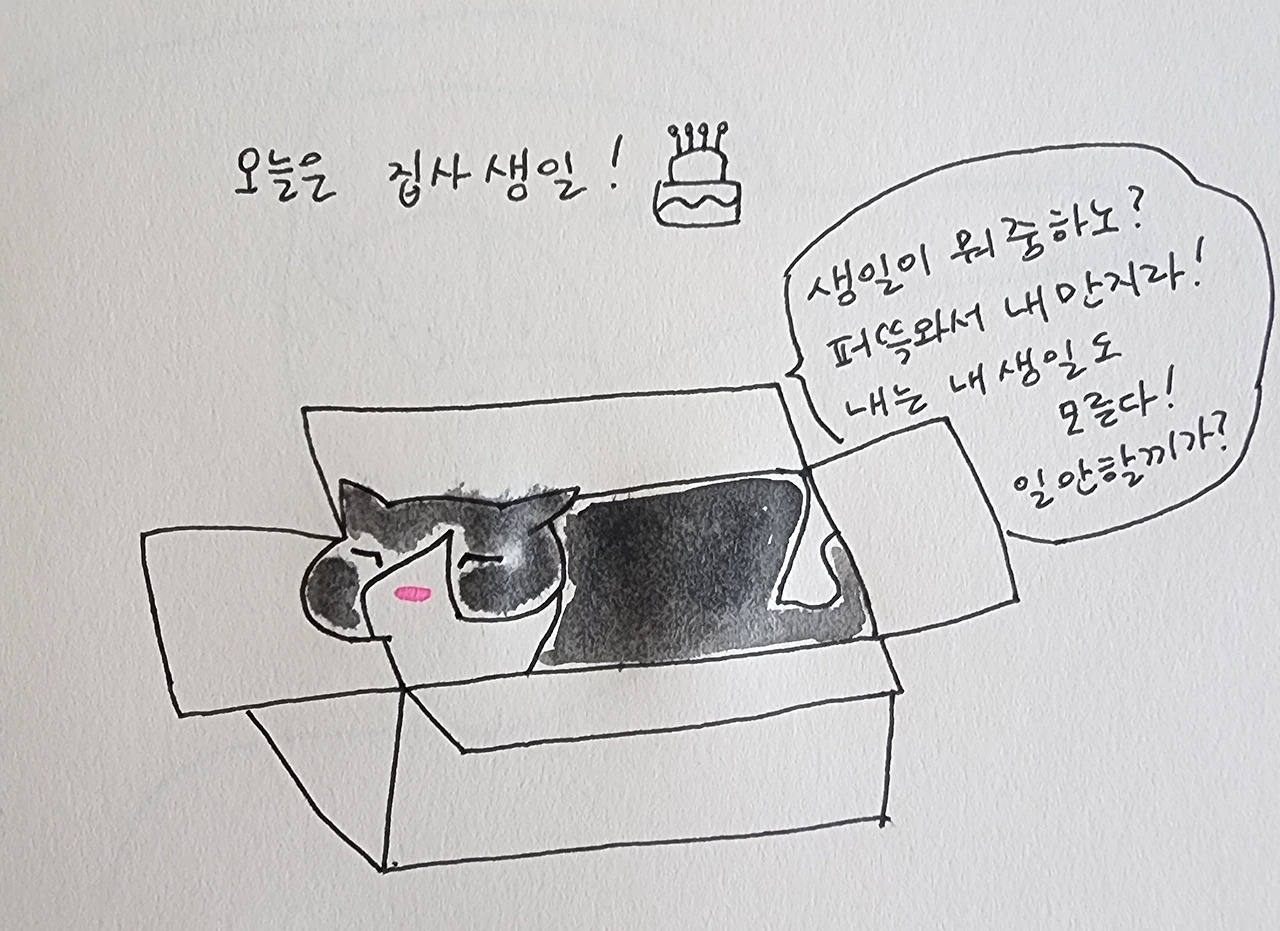 오늘은 집사생일!
생일이 뭐 중하노?
퍼쓱와서 내 만지라!
내는 내 생일도
모른다!
일안할끼가?